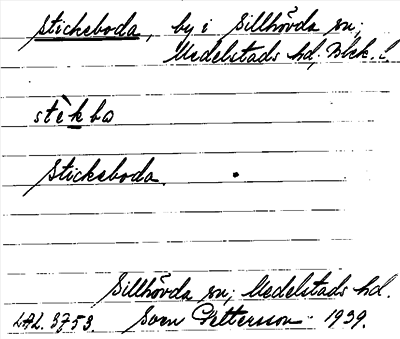 Stickeboda, by i Sillhövda sn;
Medelstads hd; Blek. l.
stèkbo
Stickeboda.
Sillhövda sn; Medelstads hd.
LAL. 3753. Sven Pettersson 1939.